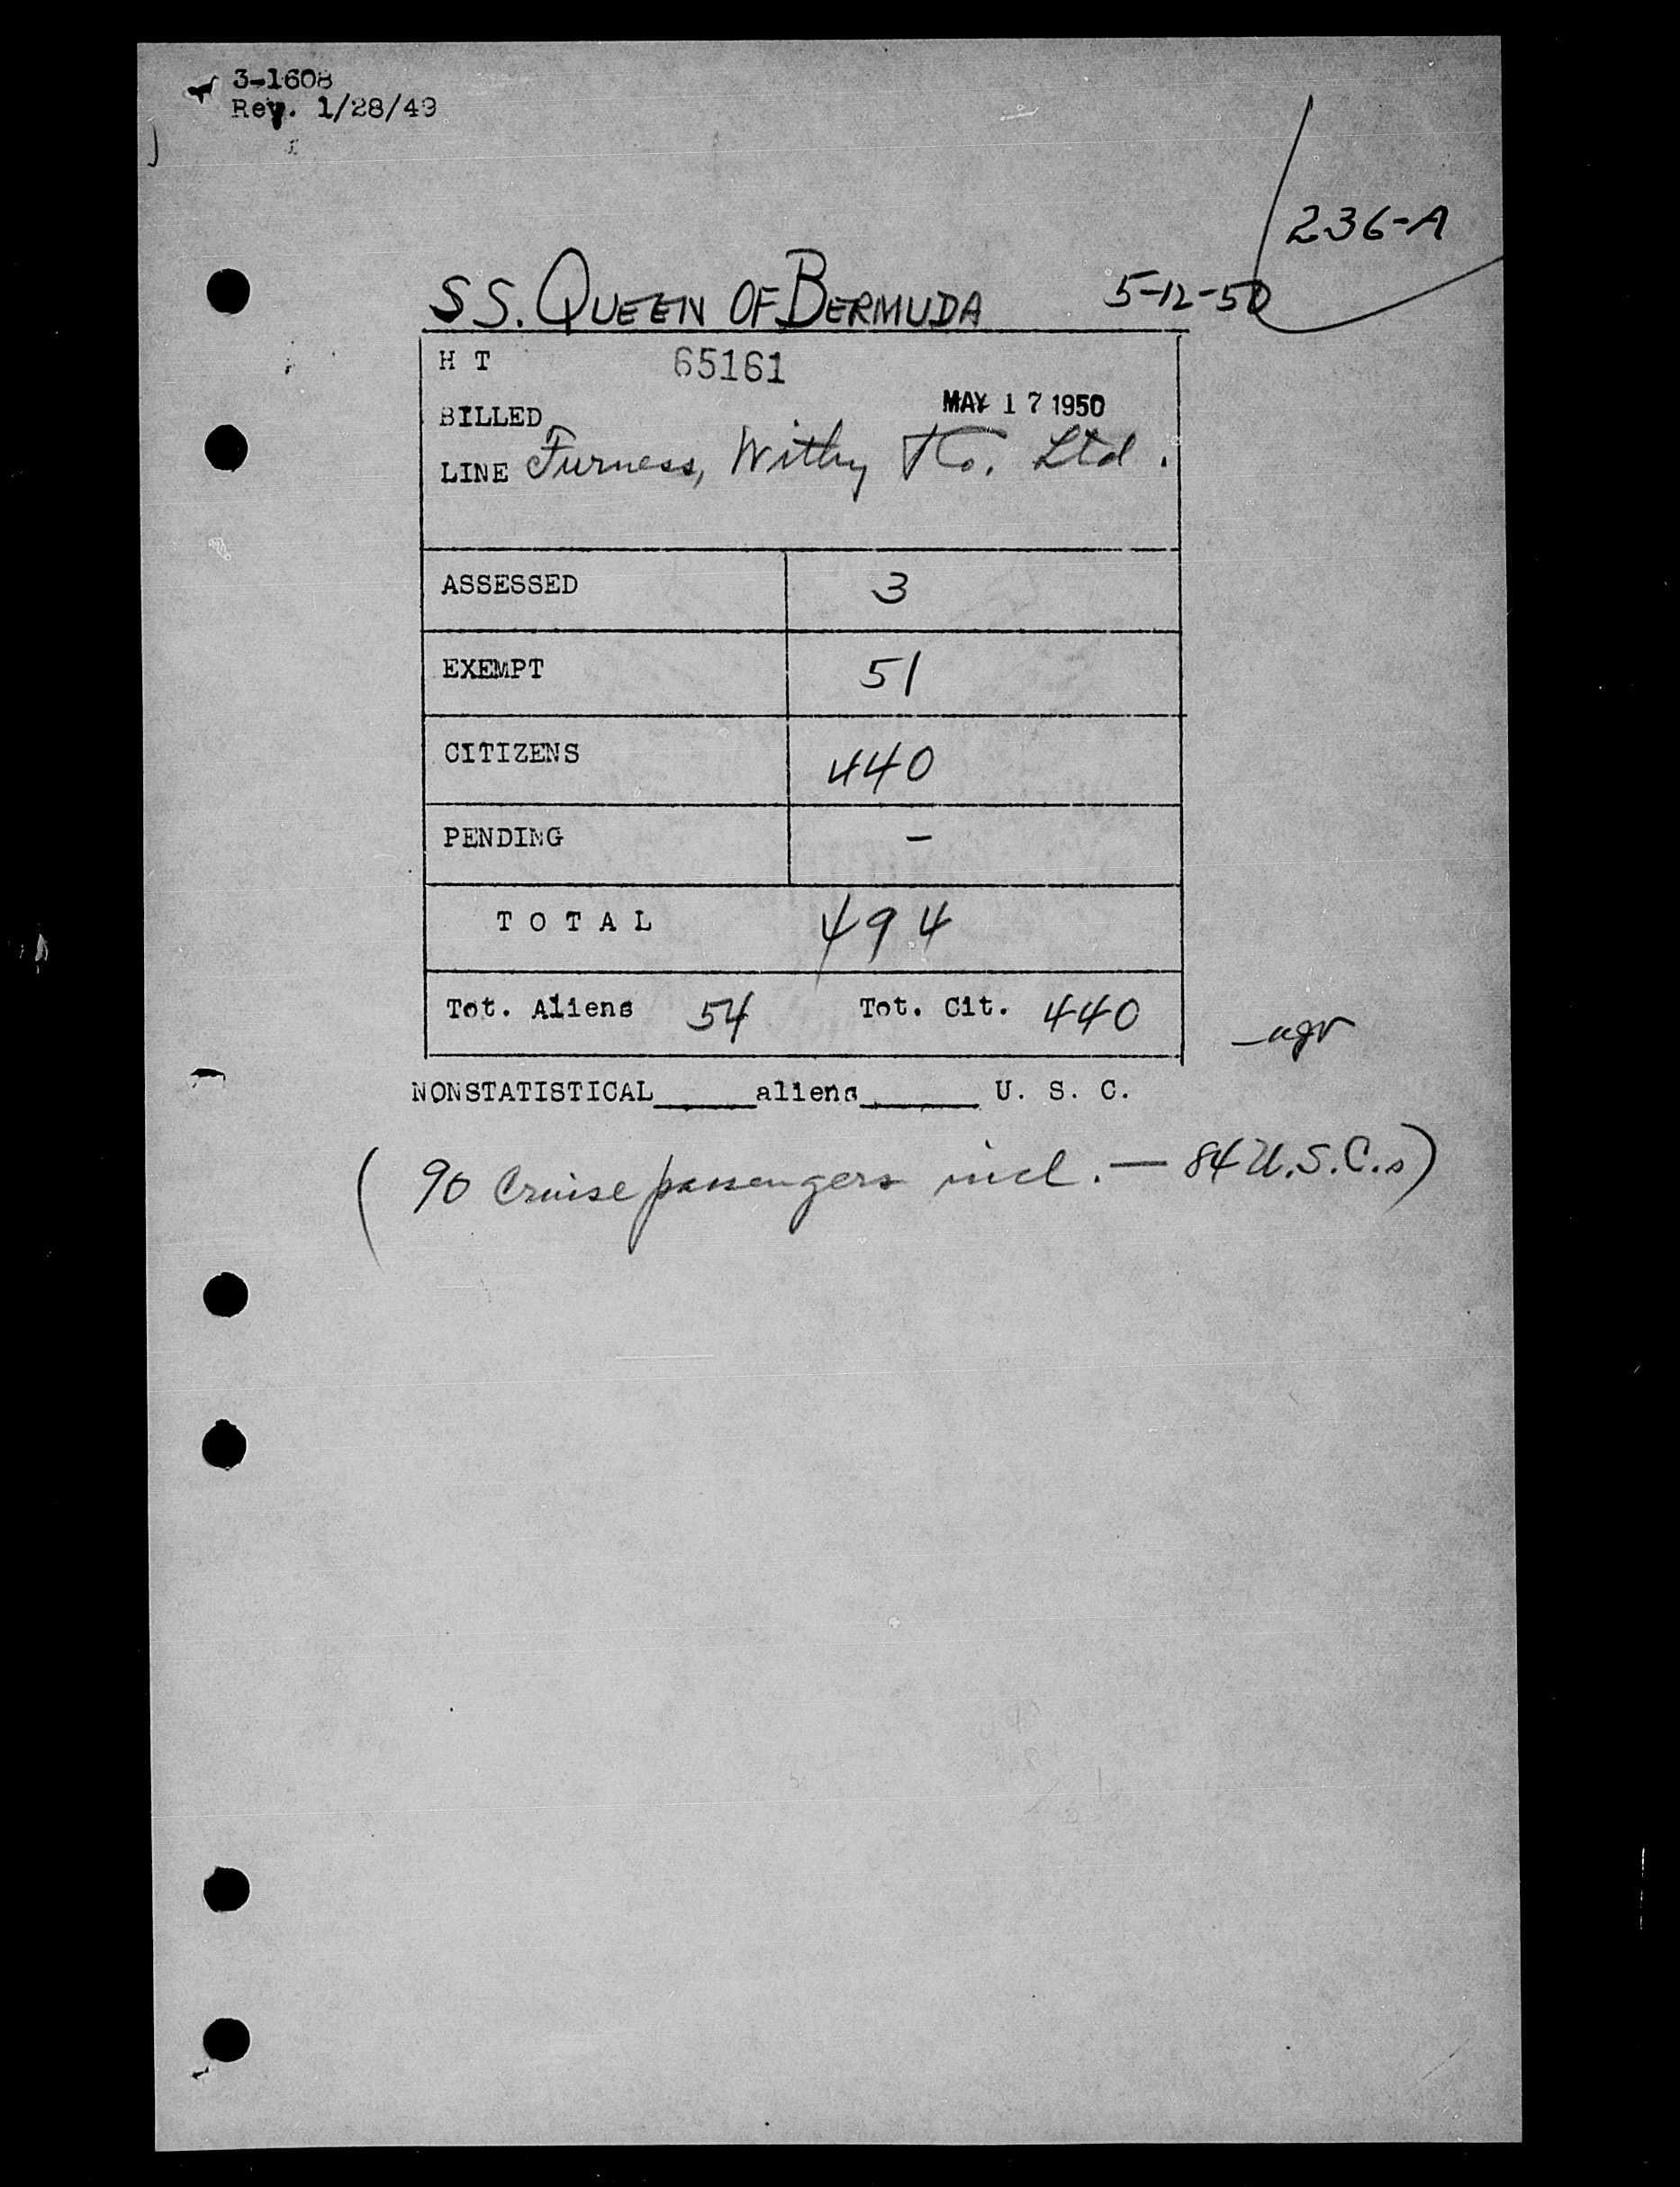 3-1608
Rev. 1/28/49
236-A
SS. QUEEN OF BERMUDA 5-12-50
H T 65161
BILLED MAY 17 1950
LINE Furness, Withy & Co. Ltd.
ASSESSED 3
EXEMPT 51
CITIZENS 440
PENDING –
T O T A L 494
Tot. Aliens 54 Tot. Cit. 440
NONSTATISTICAL_____aliens______ U. S. C.
( 90 Cruise passengers incl. — 84 U.S.C.s)